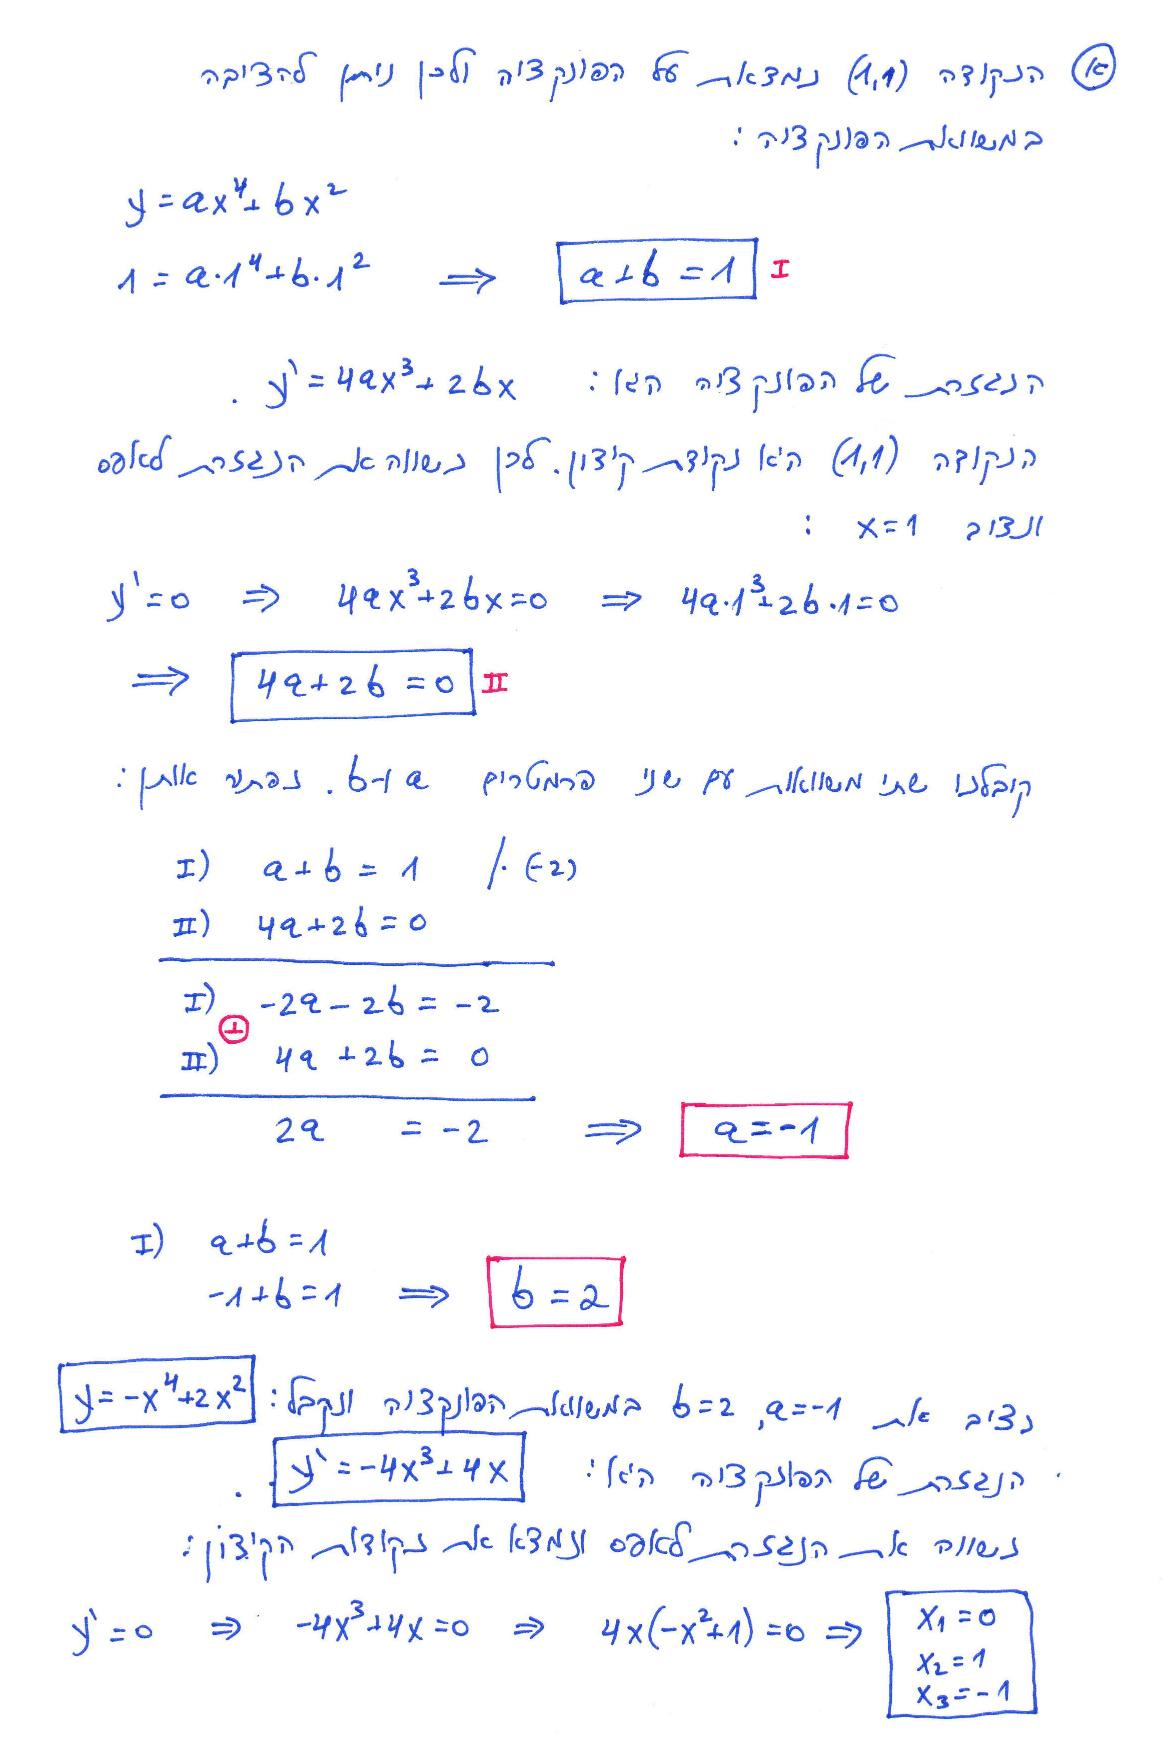 א הנקודה (1,1) נמצאת על הפונקציה ולכן ניתן להציבה
במשוואת הפונקציה :
y = ax⁴ + bx²
1 = a·1⁴ + b·1² ⇒ a+b = 1 I
הנגזרת של הפונקציה היא : y' = 4ax³ + 2bx .
הנקודה (1,1) היא נקודת קיצון. לכן נשווה את הנגזרת לאפס
ונציב x=1 :
y'=0 ⇒ 4ax³+2bx=0 ⇒ 4a·1³+2b·1=0
⇒ 4a+2b = 0 II
קיבלנו שתי משוואות עם שני פרמטרים a ו-b. נפתור אותן :
I) a+b = 1 /·(-2)
II) 4a+2b = 0
I) -2a - 2b = -2
+
II) 4a + 2b = 0
2a = -2 ⇒ a = -1
I) a+b = 1
-1+b = 1 ⇒ b = 2
נציב את a=-1, b=2 במשוואת הפונקציה ונקבל : y = -x⁴+2x²
הנגזרת של הפונקציה היא : y' = -4x³+4x .
נשווה את הנגזרת לאפס ונמצא את נקודות הקיצון :
y'=0 ⇒ -4x³+4x=0 ⇒ 4x(-x²+1)=0 ⇒ x₁=0
x₂=1
x₃=-1